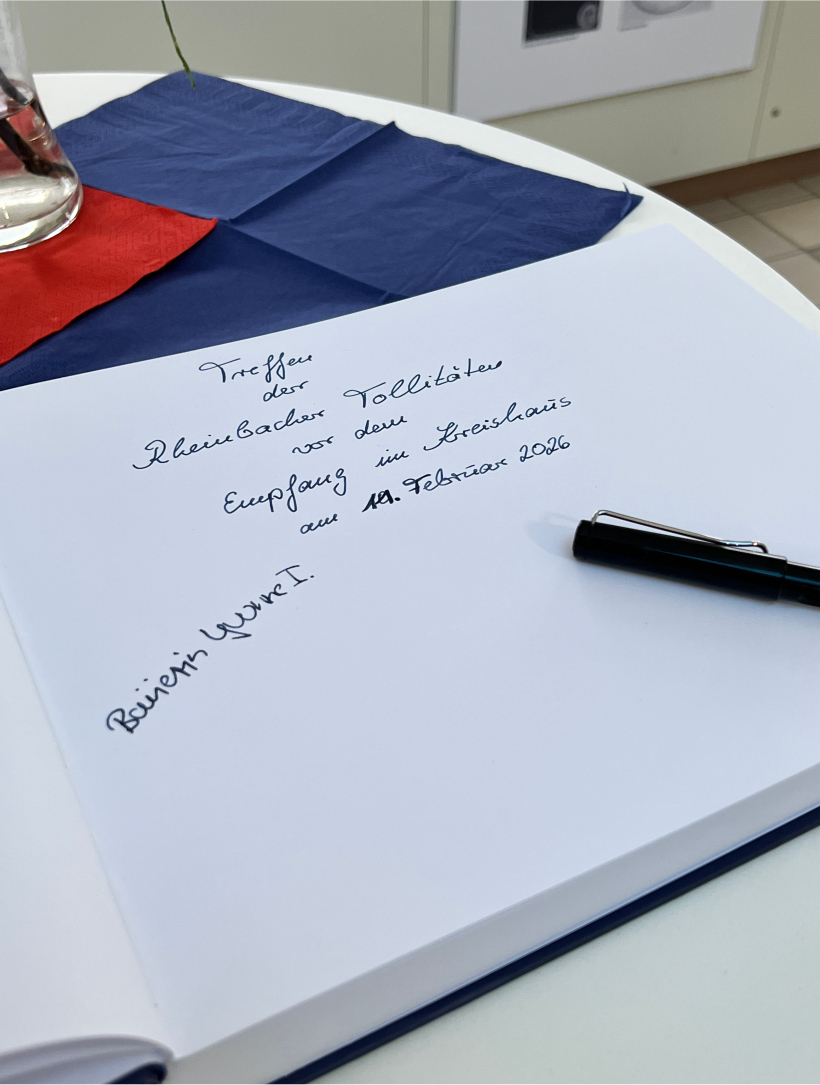 Treffen
der
Rheinbacher Tollitäten
vor dem
Empfang im Kreishaus
am Februar 2026
Bäuerin Yvonne I.